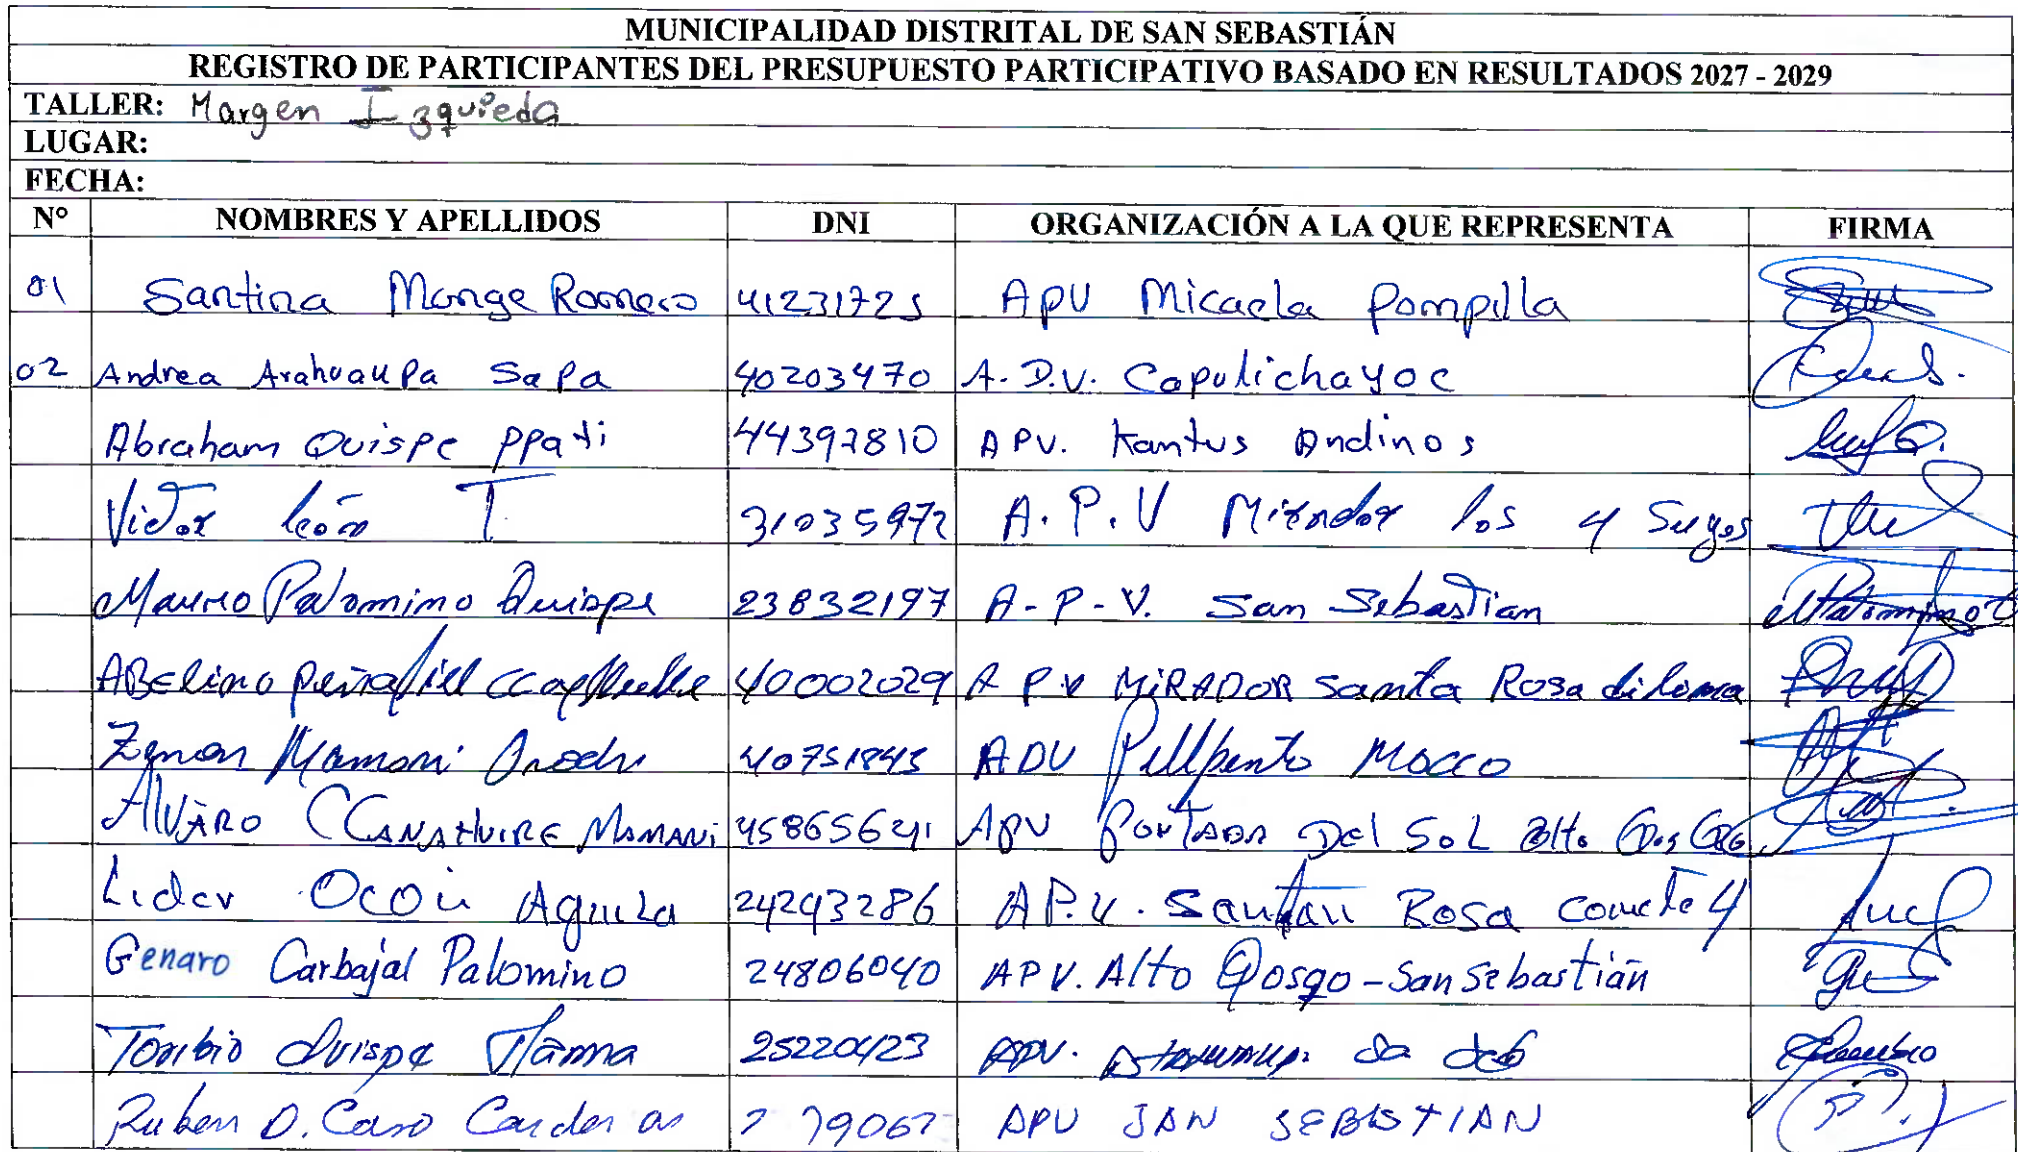 MUNICIPALIDAD DISTRITAL DE SAN SEBASTIÁN
REGISTRO DE PARTICIPANTES DEL PRESUPUESTO PARTICIPATIVO BASADO EN RESULTADOS 2027 - 2029
TALLER: Margen Izquieda
LUGAR:
FECHA:
N° NOMBRES Y APELLIDOS DNI ORGANIZACIÓN A LA QUE REPRESENTA FIRMA
01 Santina Monge Romero 41231725 APV Micaela Pompilla
02 Andrea Arahuaupa Sapa 40203470 A.D.V. Capulichayoc
Abraham Quispe ppati 44397810 APV. Kantus Andinos
Victor León T. 31035972 A.P.V Mirador los 4 Suyos
Mauro Palomino Quispe 23832197 A-P-V. San Sebastian
ABelino peñafiel 40002029 A P V MiRADOR Santa Rosa
Zenon Mamani ADV Mocco
AlVARO CCANAHUIRE MAMANi 45865641 APV PORTADA DEl SoL Alto
Lider Aguila 24243286 AP.V. Rosa comite 4
Genaro Carbajal Palomino 24806040 APV. Alto Qosqo - San Sebastián
Toribio Quispe 25220423 APV.
Ruben D. Caro Cardenas APV SAN SEBASTIAN